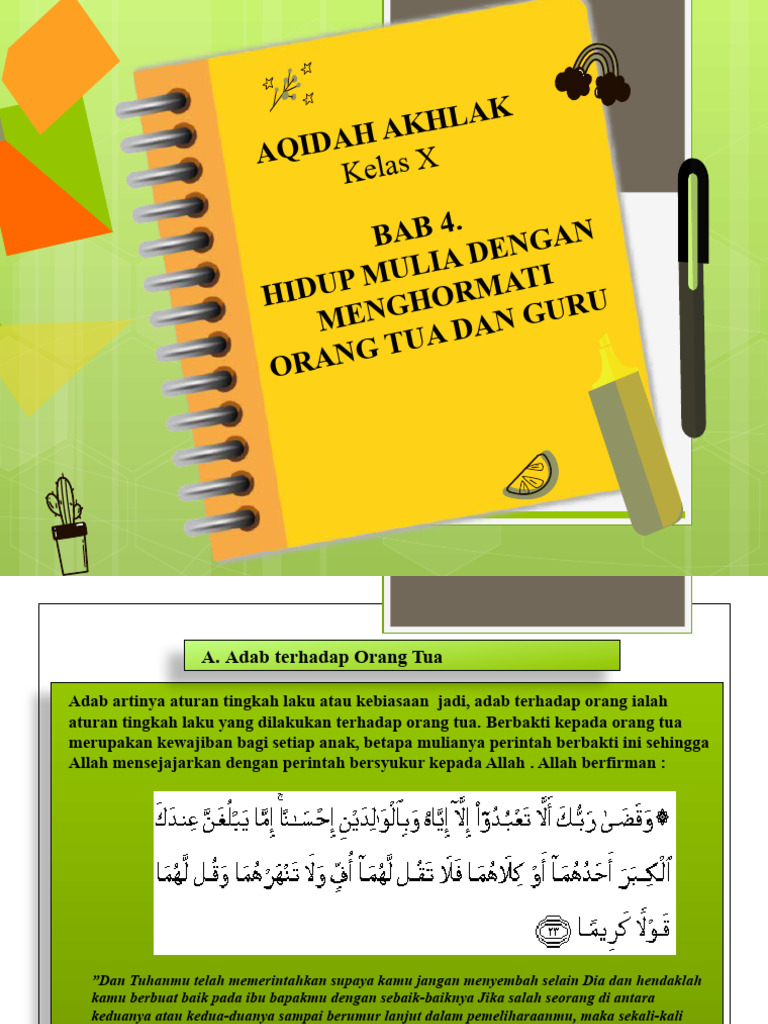 AQIDAH AKHLAK
Kelas X
BAB 4.
HIDUP MULIA DENGAN
MENGHORMATI
ORANG TUA DAN GURU
A. Adab terhadap Orang Tua
Adab artinya aturan tingkah laku atau kebiasaan jadi, adab terhadap orang ialah
aturan tingkah laku yang dilakukan terhadap orang tua. Berbakti kepada orang tua
merupakan kewajiban bagi setiap anak, betapa mulianya perintah berbakti ini sehingga
Allah mensejajarkan dengan perintah bersyukur kepada Allah . Allah berfirman :
۞ وَقَضَىٰ رَبُّكَ أَلَّا تَعْبُدُوٓا۟ إِلَّآ إِيَّاهُ وَبِٱلْوَٰلِدَيْنِ إِحْسَـٰنًا ۚ إِمَّا يَبْلُغَنَّ عِندَكَ
ٱلْكِبَرَ أَحَدُهُمَآ أَوْ كِلَاهُمَا فَلَا تَقُل لَّهُمَآ أُفٍّ وَلَا تَنْهَرْهُمَا وَقُل لَّهُمَا
قَوْلًا كَرِيمًا ﴿٢٣﴾
”Dan Tuhanmu telah memerintahkan supaya kamu jangan menyembah selain Dia dan hendaklah
kamu berbuat baik pada ibu bapakmu dengan sebaik-baiknya Jika salah seorang di antara
keduanya atau kedua-duanya sampai berumur lanjut dalam pemeliharaanmu, maka sekali-kali